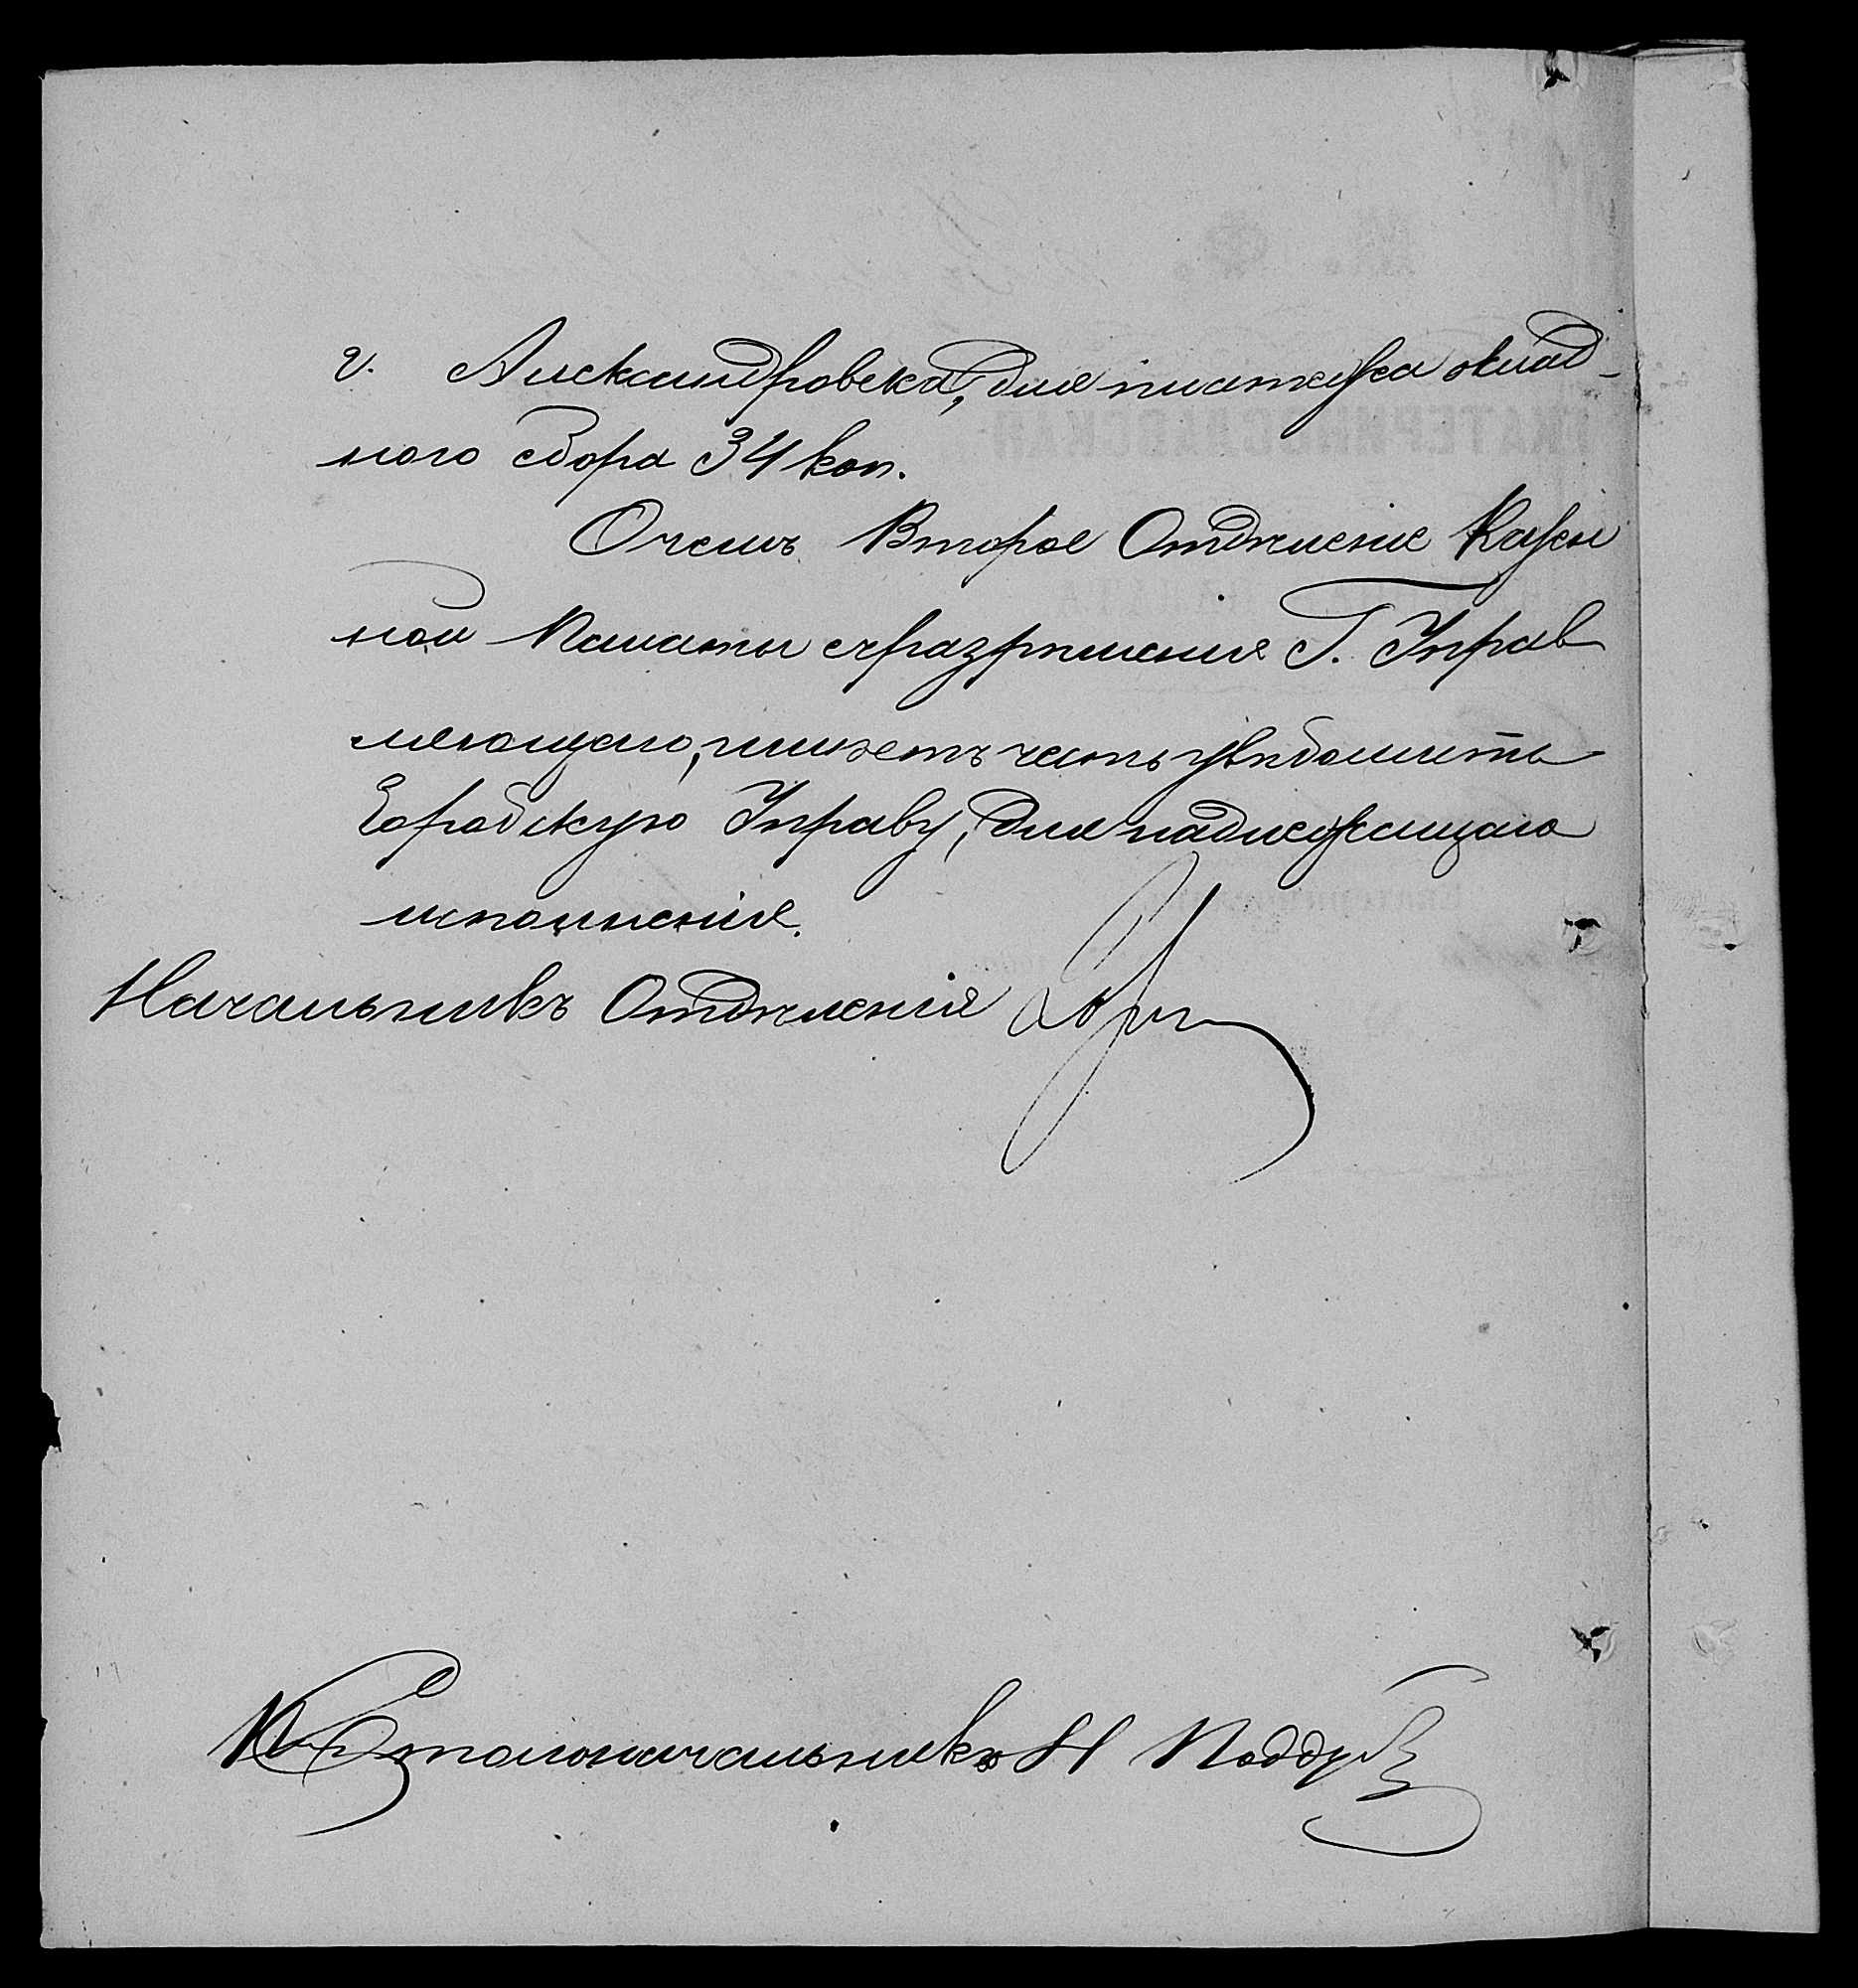 г. Александровска, для платежа оклад-
ного сбора 34 коп.
О чемъ Второе Отдѣленіе Казен
ной Палаты съ разрѣшенія Г. Управ
ляющаго, имѣетъ честь увѣдомить
Городскую Управу, для надлежащаго
исполненія.
Начальникъ Отдѣленія
Столоначальникъ Н